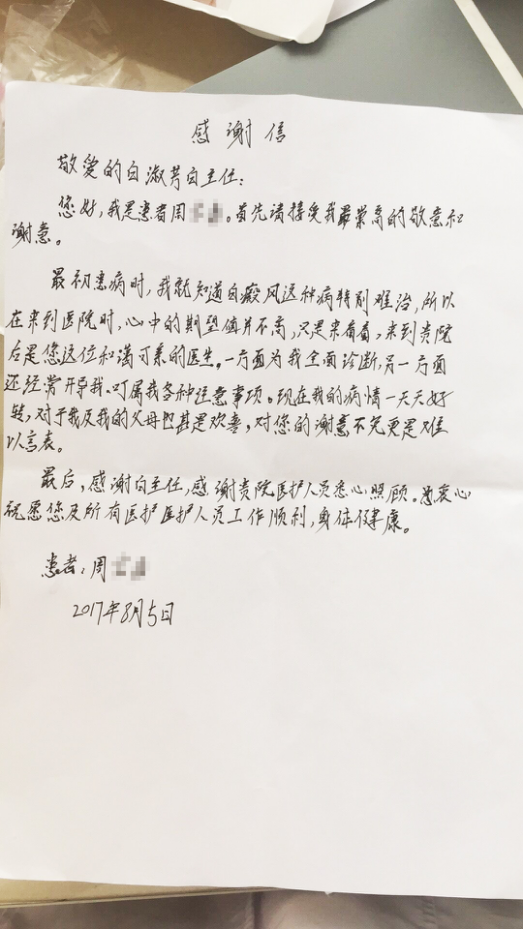 感谢信
敬爱的白淑芳白主任：
您好，我是患者周。首先请接受我最崇高的敬意和
谢意。
最初患病时，我就知道白癜风这种病特别难治，所以
在来到医院时，心中的期望值并不高，只是来看看，来到贵院
后是您这位和蔼可亲的医生。一方面为我全面诊断，另一方面
还经常开导我、叮属我各种注意事项。现在我的病情一天天好
转，对于我及我的父母甚是欢喜，对您的谢意不完更是难
以言表。
最后，感谢白主任，感谢贵院医护人员悉心照顾。衷心
祝愿您及所有医护医护人员工作顺利，身体健康。
患者：周
2017年8月5日